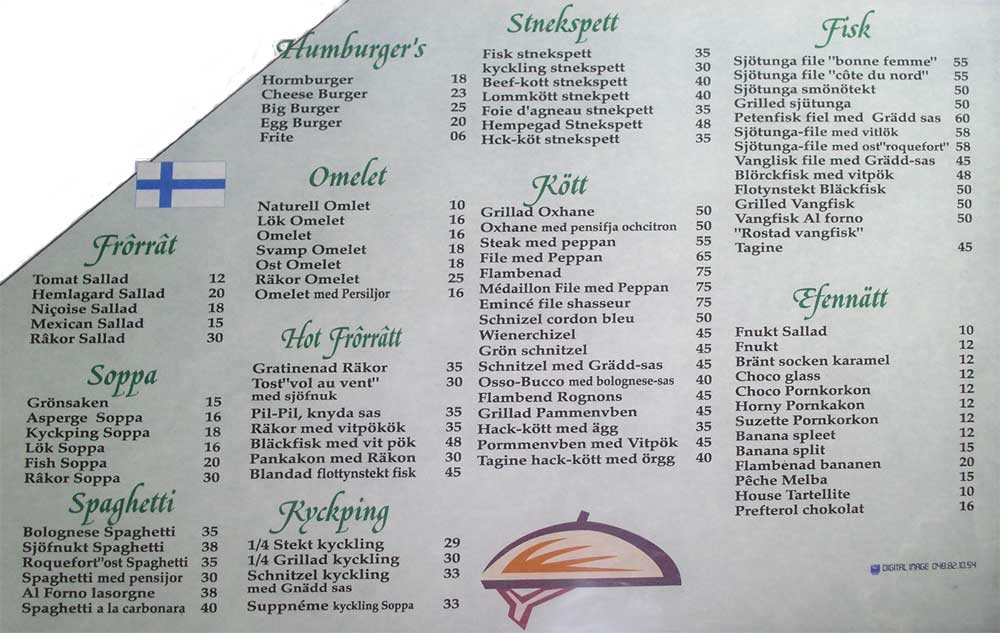 Humburger's
Hormburger 18
Cheese Burger 23
Big Burger 25
Egg Burger 20
Frite 06
Omelet
Naturell Omlet 10
Lök Omelet 16
Omelet 16
Svamp Omelet 18
Ost Omelet 18
Räkor Omelet 25
Omelet med Persiljor 16
Frôrrât
Tomat Sallad 12
Hemlagard Sallad 20
Niçoise Sallad 18
Mexican Sallad 15
Râkor Sallad 30
Soppa
Grönsaken 15
Asperge Soppa 16
Kyckping Soppa 18
Lök Soppa 16
Fish Soppa 20
Râkor Soppa 30
Spaghetti
Bolognese Spaghetti 35
Sjöfnukt Spaghetti 38
Roquefort"ost Spaghetti 35
Spaghetti med pensijor 30
Al Forno lasorgne 38
Spaghetti a la carbonara 40
Hot Frôrrâtt
Gratinenad Räkor 35
Tost"vol au vent" 30
med sjöfnuk
Pil-Pil, knyda sas 35
Räkor med vitpökök 35
Bläckfisk med vit pök 48
Pankakon med Räkon 30
Blandad flottynstekt fisk 45
Kyckping
1/4 Stekt kyckling 29
1/4 Grillad kyckling 30
Schnitzel kyckling 33
med Gnädd sas
Suppnéme kyckling Soppa 33
Stnekspett
Fisk stnekspett 35
kyckling stnekspett 30
Beef-kott stnekspett 40
Lommkött stnekpett 40
Foie d'agneau stnekpett 35
Hempegad Stnekspett 48
Hck-köt stnekspett 35
Kött
Grillad Oxhane 50
Oxhane med pensifja ochcitron 50
Steak med peppan 55
File med Peppan 65
Flambenad 75
Médaillon File med Peppan 75
Emincé file shasseur 75
Schnizel cordon bleu 50
Wienerchizel 45
Grön schnitzel 45
Schnitzel med Grädd-sas 45
Osso-Bucco med bolognese-sas 40
Flambend Rognons 45
Grillad Pammenvben 45
Hack-kött med ägg 35
Pormmenvben med Vitpök 45
Tagine hack-kött med örgg 40
Fisk
Sjötunga file "bonne femme" 55
Sjötunga file "côte du nord" 55
Sjötunga smönötekt 50
Grilled sjütunga 50
Petenfisk fiel med Grädd sas 60
Sjötunga-file med vitlök 58
Sjötunga-file med ost"roquefort" 58
Vanglisk file med Grädd-sas 45
Blörckfisk med vitpök 48
Flotynstekt Bläckfisk 50
Grilled Vangfisk 50
Vangfisk Al forno 50
"Rostad vangfisk"
Tagine 45
Efennätt
Fnukt Sallad 10
Fnukt 12
Bränt socken karamel 12
Choco glass 12
Choco Pornkorkon 12
Horny Pornkakon 12
Suzette Pornkorkon 12
Banana spleet 12
Banana split 15
Flambenad bananen 20
Pêche Melba 15
House Tartellite 10
Prefterol chokolat 16
DIGITAL IMAGE 048.82.10.54